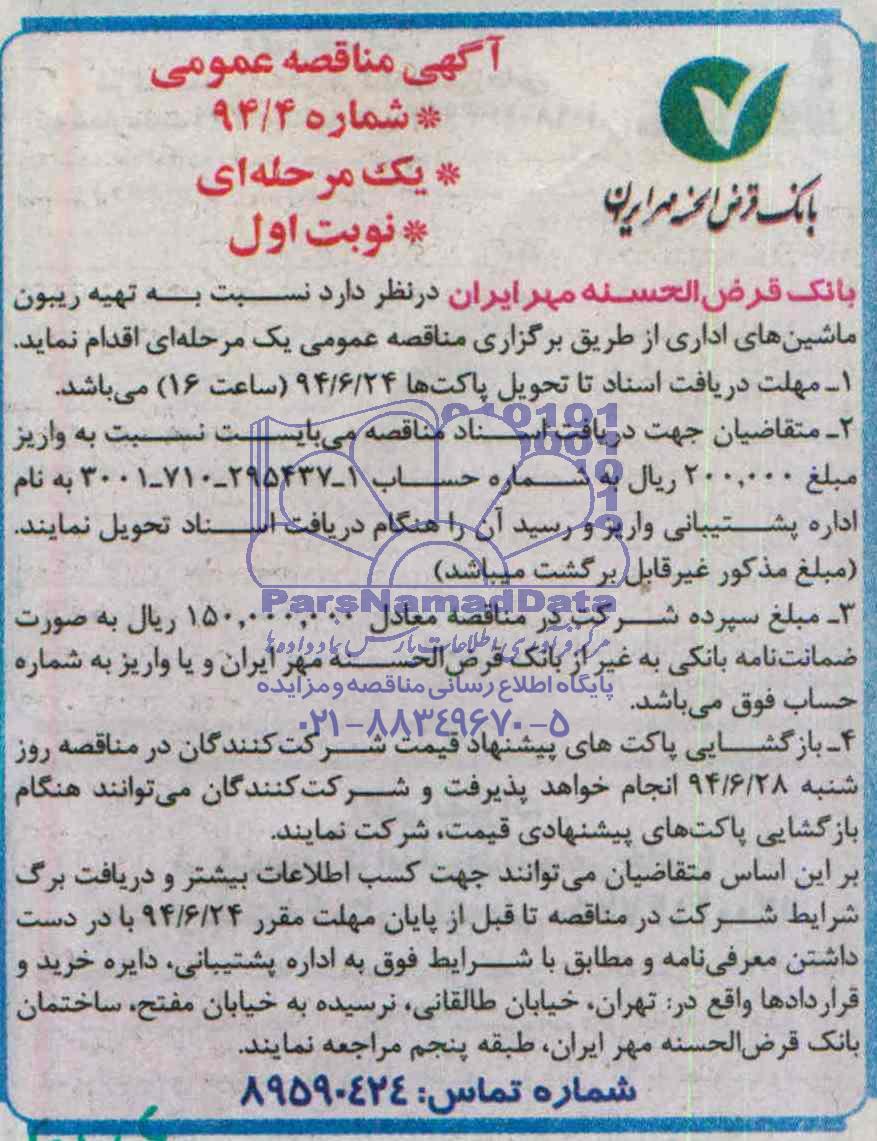 آگهی مناقصه عمومی
* شماره ۹۴/۴
* یک مرحله‌ای
* نوبت اول
بانک قرض الحسنه مهر ایران
بانک قرض‌الحسنه مهر ایران درنظر دارد نسبت به تهیه ریبون
ماشین‌های اداری از طریق برگزاری مناقصه عمومی یک مرحله‌ای اقدام نماید.
۱ـ مهلت دریافت اسناد تا تحویل پاکت‌ها ۹۴/۶/۲۴ (ساعت ۱۶) می‌باشد.
۲ـ متقاضیان جهت دریافت اسناد مناقصه می‌بایست نسبت به واریز
مبلغ ۲۰۰,۰۰۰ ریال به شماره حساب ۱ـ۲۹۵۴۳۷ـ۷۱۰ـ۳۰۰۱ به نام
اداره پشتیبانی واریز و رسید آن را هنگام دریافت اسناد تحویل نمایند.
(مبلغ مذکور غیرقابل برگشت میباشد)
ParsNamadData
۳ـ مبلغ سپرده شرکت در مناقصه معادل ۱۵۰,۰۰۰,۰۰۰ ریال به صورت
مرکز فرآوری اطلاعات پارس نماد داده‌ها
ضمانت‌نامه بانکی به غیر از بانک قرض‌الحسنه مهر ایران و یا واریز به شماره
پایگاه اطلاع رسانی مناقصه و مزایده
حساب فوق می‌باشد.
۰۲۱-۸۸۳۴۹۶۷۰-۵
۴ـ بازگشایی پاکت های پیشنهاد قیمت شرکت‌کنندگان در مناقصه روز
شنبه ۹۴/۶/۲۸ انجام خواهد پذیرفت و شرکت‌کنندگان می‌توانند هنگام
بازگشایی پاکت‌های پیشنهادی قیمت، شرکت نمایند.
بر این اساس متقاضیان می‌توانند جهت کسب اطلاعات بیشتر و دریافت برگ
شرایط شرکت در مناقصه تا قبل از پایان مهلت مقرر ۹۴/۶/۲۴ با در دست
داشتن معرفی‌نامه و مطابق با شرایط فوق به اداره پشتیبانی، دایره خرید و
قراردادها واقع در: تهران، خیابان طالقانی، نرسیده به خیابان مفتح، ساختمان
بانک قرض‌الحسنه مهر ایران، طبقه پنجم مراجعه نمایند.
شماره تماس: ۸۹۵۹۰۴۲۴